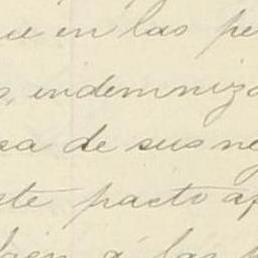 ue en las pe
s, indemniza
sa de sus ne
ste pacto a
á las